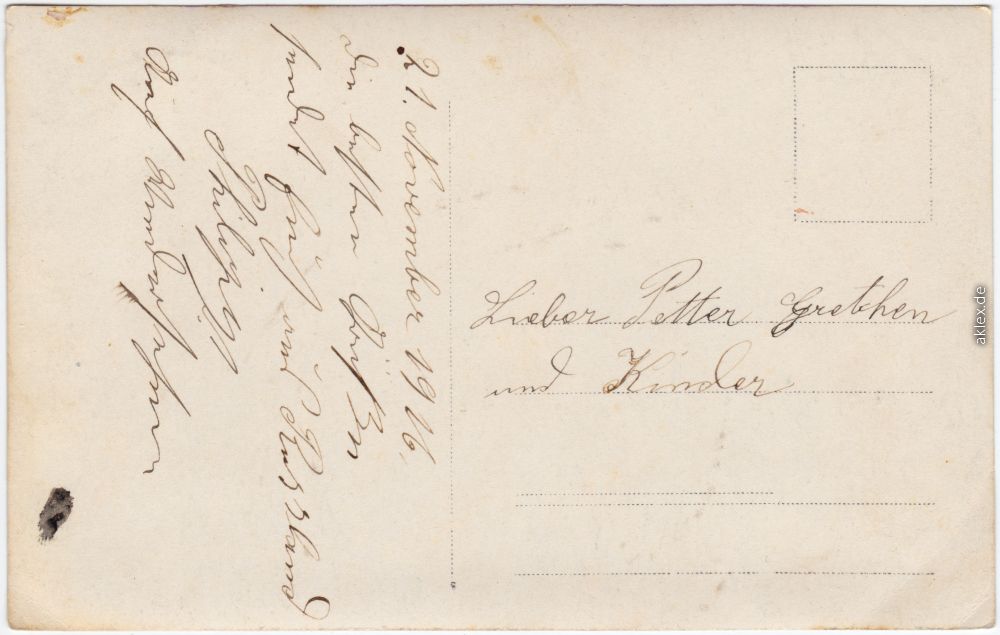 21. November 1916.
Die besten Grüßen
sendet Euch aus Russland
Philipp
Auf Wiedersehen
Lieber Petter Gretchen
und Kinder
aklex.de